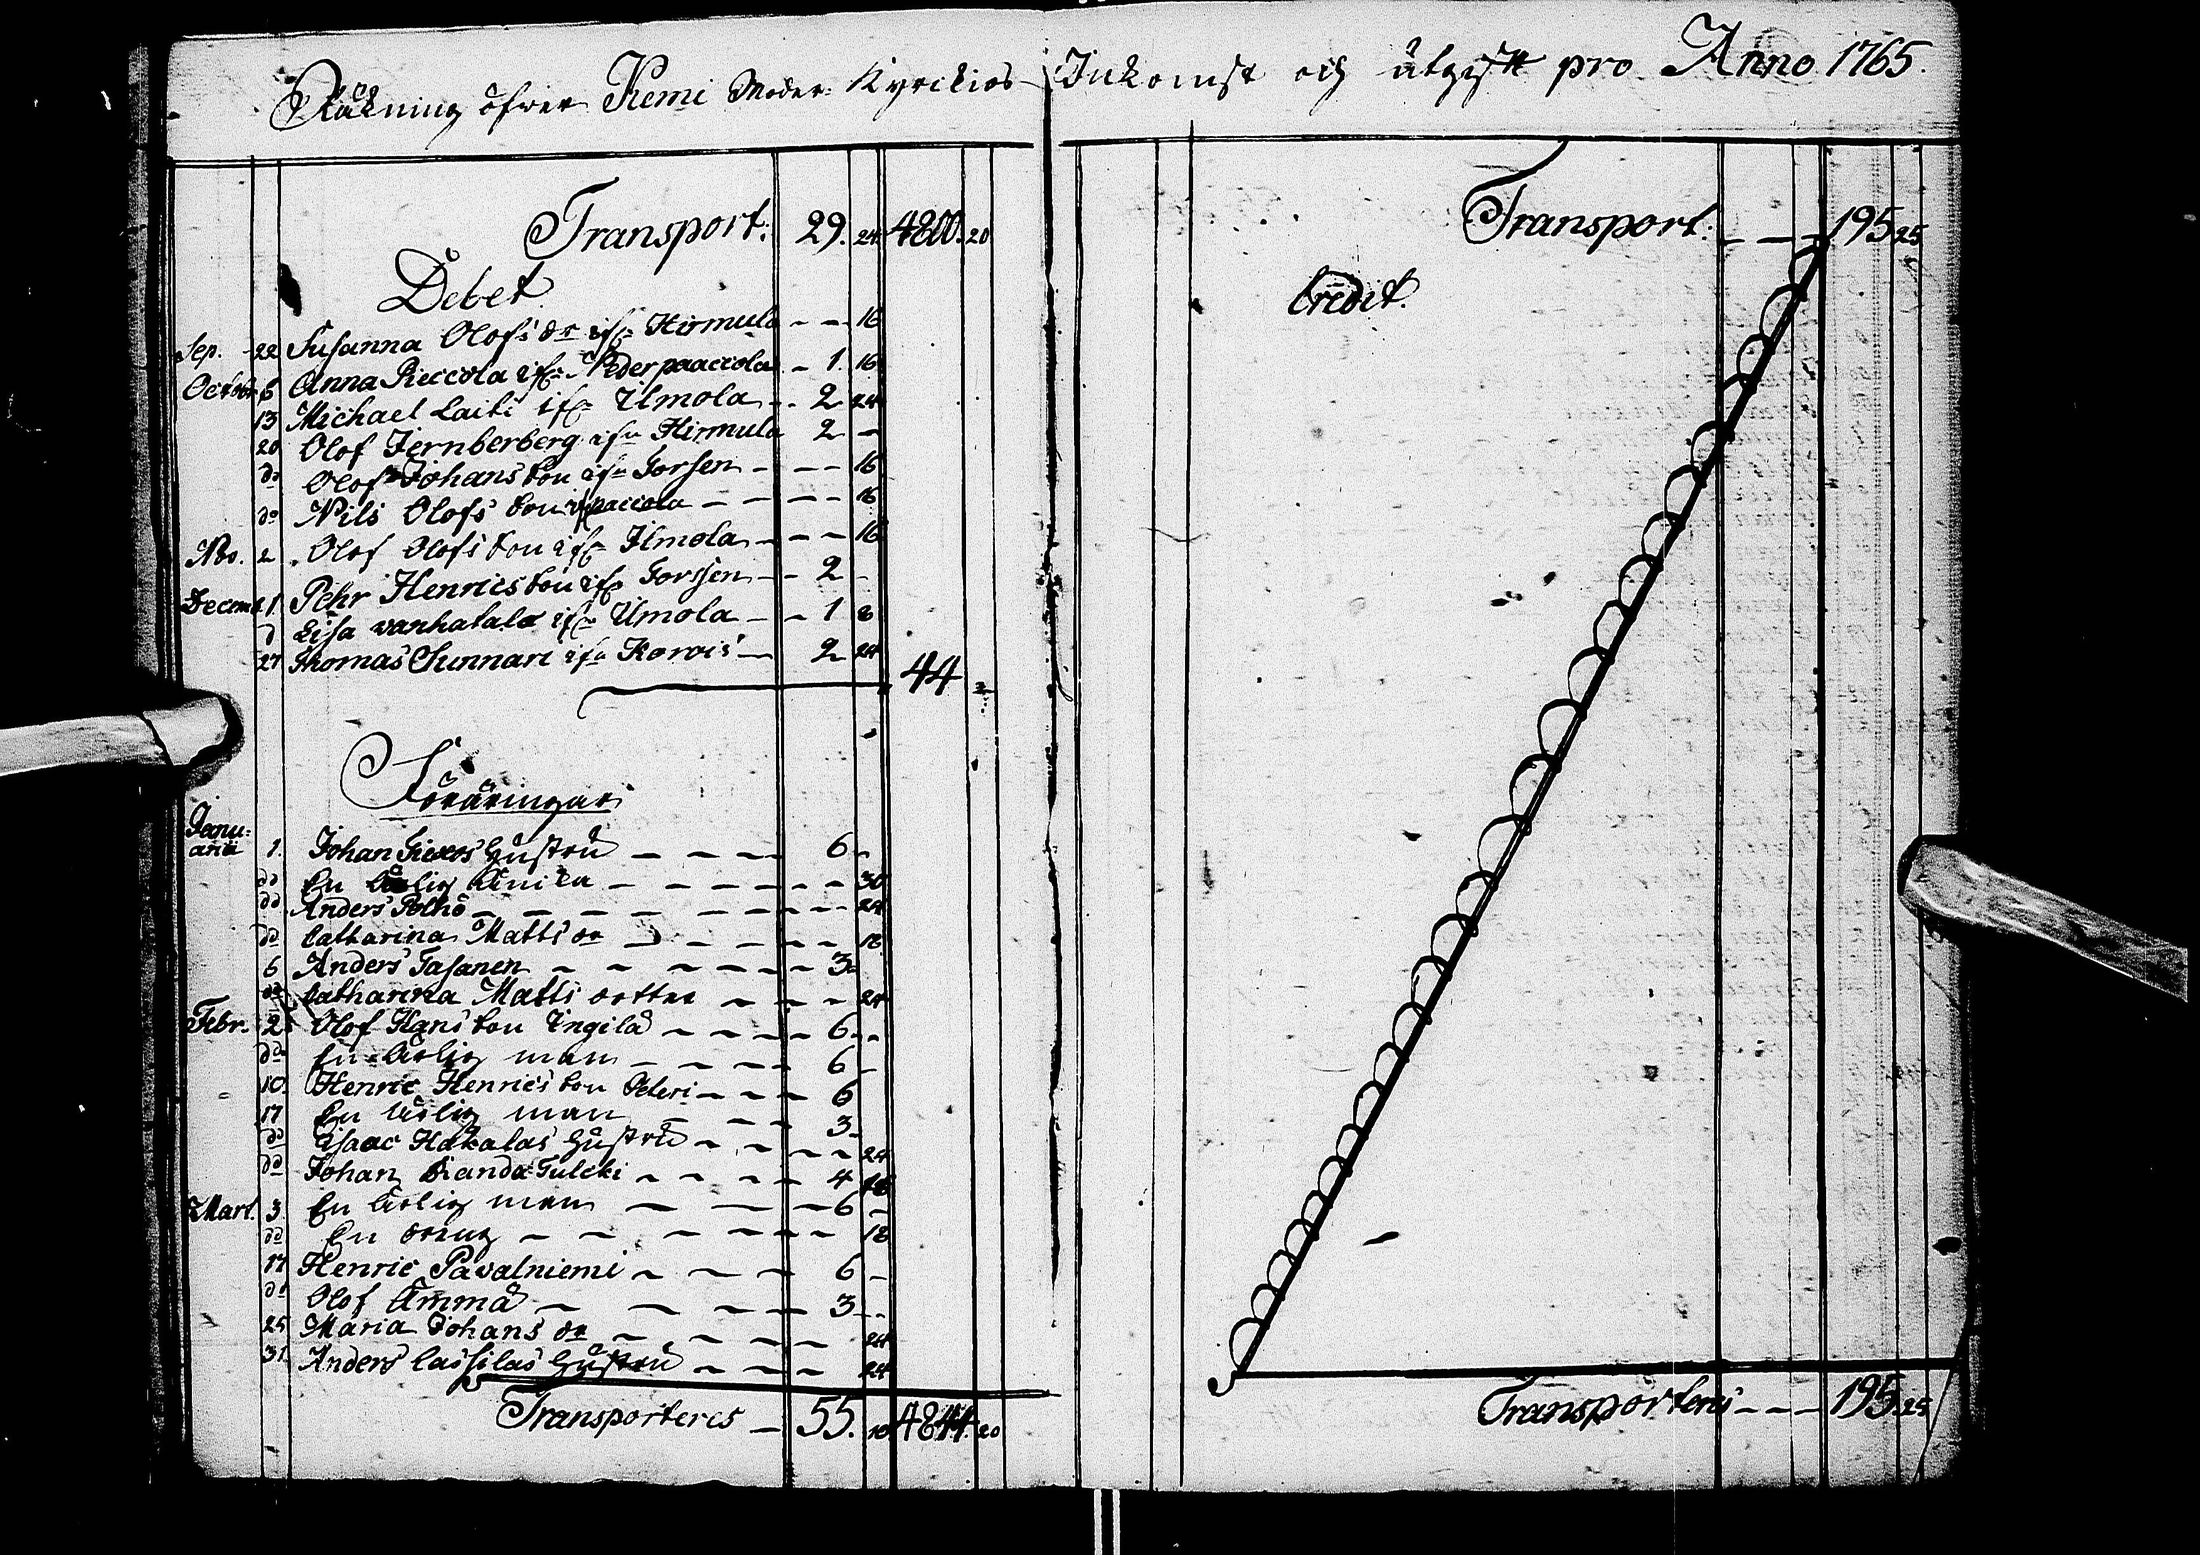 Räkning öfwer Kemi Moder Kyrckios Inkomst och utgift pro Anno 1765.
Transport: 29. 24 4800. 20
Debet
Sep. 22 Susanna Olofs dr ifr Hirmula - - 16
October 6 Anna Pieccola ifr Nederpaaccola - 1. 16
13 Michael Laiti ifr Ilmola - - 2 24
20 Olof Jernberberg ifr Hirmula 2 -
do Olof Johans son ifr Jorssen - - - 16
do Nils Olofs son ifr paccola - - - - 16
Nov. 2. Olof Olofs son ifr Ilmola - - - 16
Decemb. 1. Pehr Henrics son ifr Jorssen - - 2 -
d Lisa vanhatalo ifr Ilmola - - 1 8
27 Thomas Sunnari ifr Korvis - 2 24
44 -
Föräringar
Janu:
arii 1. Johan Hustru - - - - 6 -
do En ärlig qvinna - - - - - - 30
do Anders Polho - - - - - - - - 24
do Catharina Matts dr - - - - - 18
6 Anders Tasanen - - - - - - 3 -
do Catharina Matts dotter - - - - 24
Febr. 2. Olof Hans son Ingilä - - - - 6 - -
do En ärlig man - - - - - 6 -
10. Henric Henrics son Peteri - - - 6
17 En ärlig man - - - - 3 -
do Isaac Hakalas Hustru - - - - - 24
do Johan Tulcki - - - - 4 18
Mart. 3. En ärlig man - - - - 6 -
do En dräng - - - - - - - 18
17 Henric Pavalniemi - - - - 6 -
do Olof Ämmä - - - - - - 3 - -
25 Maria Johans dr - - - - - 24
31. Anders Lassilas Hustru - - - - 24
Transporteres - 55. 10 4844. 20
Transport: - - - 195 25
Credit.
Transporteres - - - 195. 25